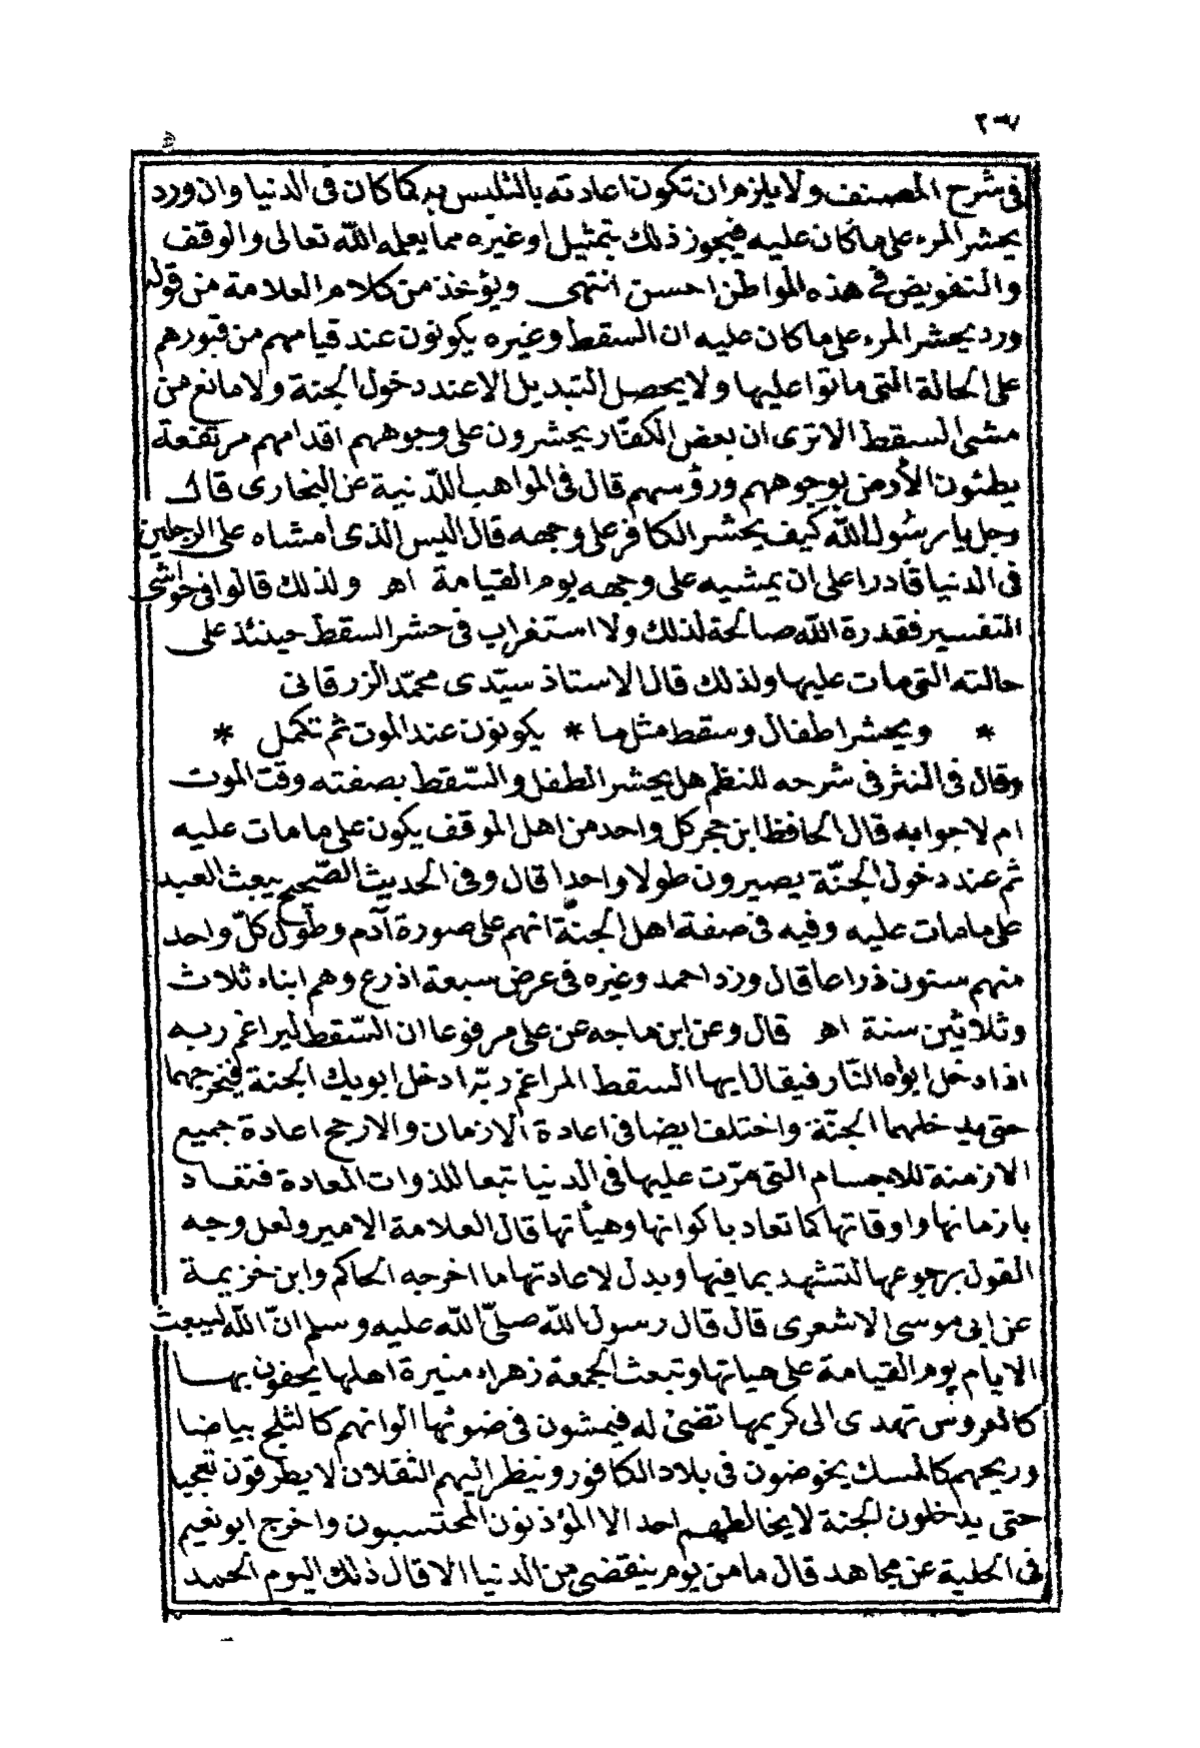 ٢٠٧
فى شرح المصنف ولا يلزم ان تكون اعادته بالتلبس به كما كان فى الدنيا وان ورد
يحشر المرء على ما كان عليه فيجوز ذلك بتمثيل او غيره مما يعلمه الله تعالى والوقف
والتفويض فى هذه المواطن احسن انتهى ويؤخذ من كلام العلامة من قوله
ورد يحشر المرء على ما كان عليه ان السقط وغيره يكونون عند قيامهم من قبورهم
على الحالة التى ماتوا عليها ولا يحصل التبديل الا عند دخول الجنة ولا مانع من
مشى السقط الا ترى ان بعض الكفار يحشرون على وجوههم اقدامهم مرتفعة
يطئون الأرض بوجوههم ورؤسهم قال فى المواهب اللدّنية عن البخارى قال
رجل يا رسُول الله كيف يحشر الكافر على وجهه قال اليس الذى أمشاه على الرجلين
فى الدنيا قادرا على ان يمشيه على وجهه يوم القيامة اهـ ولذلك قالوا فى حواشى
التفسير فقدرة الله صالحة لذلك ولا استغراب فى حشر السقط حينئذ على
حالته التى مات عليها ولذلك قال الاستاذ سيّدى محمّد الزرقانى
* ويحشر اطفال وسقط مثل ما * يكونون عند الموت ثم تكمل *
وقال فى النثر فى شرحه للنظم هل يحشر الطفل والسّقط بصفته وقت الموت
ام لا جوابه قال الحافظ ابن حجر كل واحد من اهل الموقف يكون على ما مات عليه
ثم عند دخول الجنّة يصيرون طولا واحدا قال وفى الحديث الصّحيح يبعث العبد
على ما مات عليه وفيه فى صفة اهل الجنّة انهم على صورة آدم وطول كلّ واحد
منهم ستون ذراعا قال وزد احمد وغيره فى عرض سبعة اذرع وهم ابناء ثلاث
وثلاثين سنة اهـ قال وعن ابن ماجه عن على مرفوعا ان السّقط ليراغم ربه
اذا دخل ابواه النّار فيقال ايها السقط المراغم ربّه ادخل ابويك الجنة فيخرجهما
حتى يدخلهما الجنّة واختلف ايضا فى اعادة الازمان والارجح اعادة جميع
الازمنة للاجسام التى مرّت عليها فى الدنيا تبعا للذوات المعادة فتعاد
بازمانها واوقاتها كما تعاد باكوانها وهيأتها قال العلامة الامير ولعل وجه
القول برجوعها لتشهد بما فيها ويدل لاعادتها ما اخرجه الحاكم وابن خزيمة
عن ابى موسى الاشعرى قال قال رسول الله صلّى الله عليه وسلم انّ الله ليبعث
الايام يوم القيامة على هياتها وتبعث الجمعة زهراء منيرة اهلها يحفون بها
كالعروس تهدى الى كريمها تضئ له فيمشون فى ضوئها الوانهم كالثلج بياضا
وريحهم كالمسك يخوضون فى بلاد الكافور وينظر اليهم الثقلان لا يطرقون تعجبا
حتى يدخلون الجنة لا يخالطهم احد الا المؤذنون المحتسبون واخرج ابو نعيم
فى الحلية عن مجاهد قال ما من يوم ينقضى من الدنيا الا قال ذلك اليوم الحمد